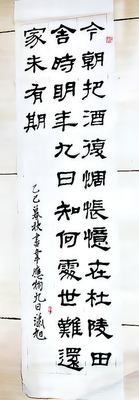 今朝把酒復惆悵憶在杜陵田
舍時明年九日知何處世難還
家未有期
乙巳暮秋書韋應物九日瀛旭